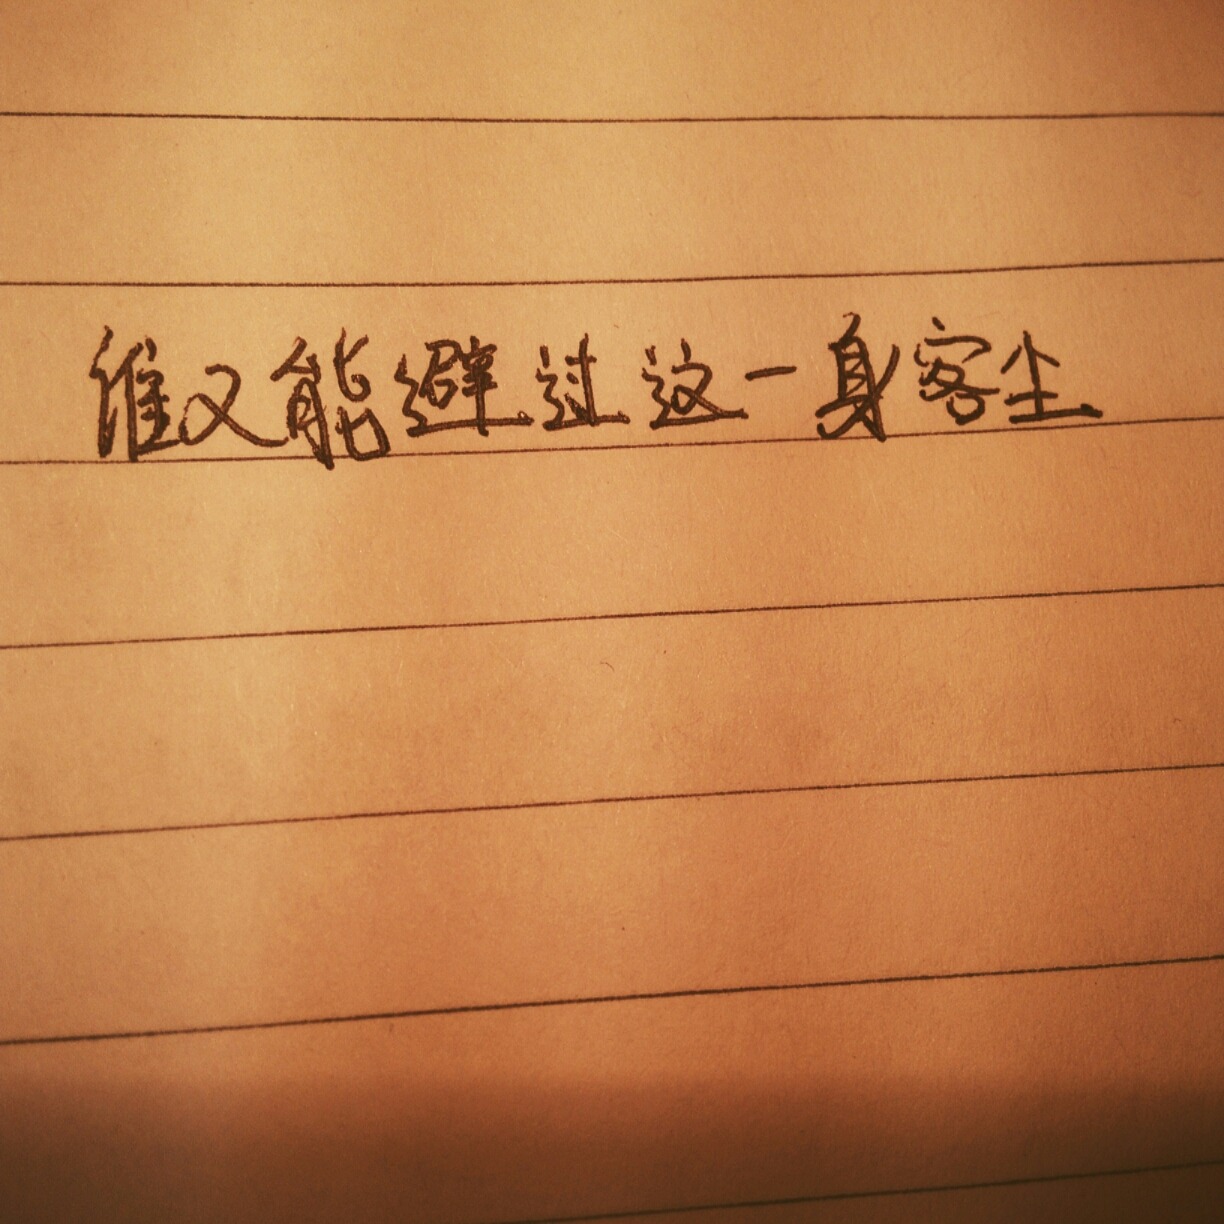 谁又能避过这一身客尘